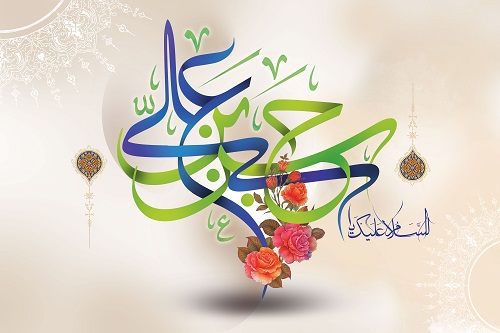 السلام علیک یا
حسن بن علی
ع